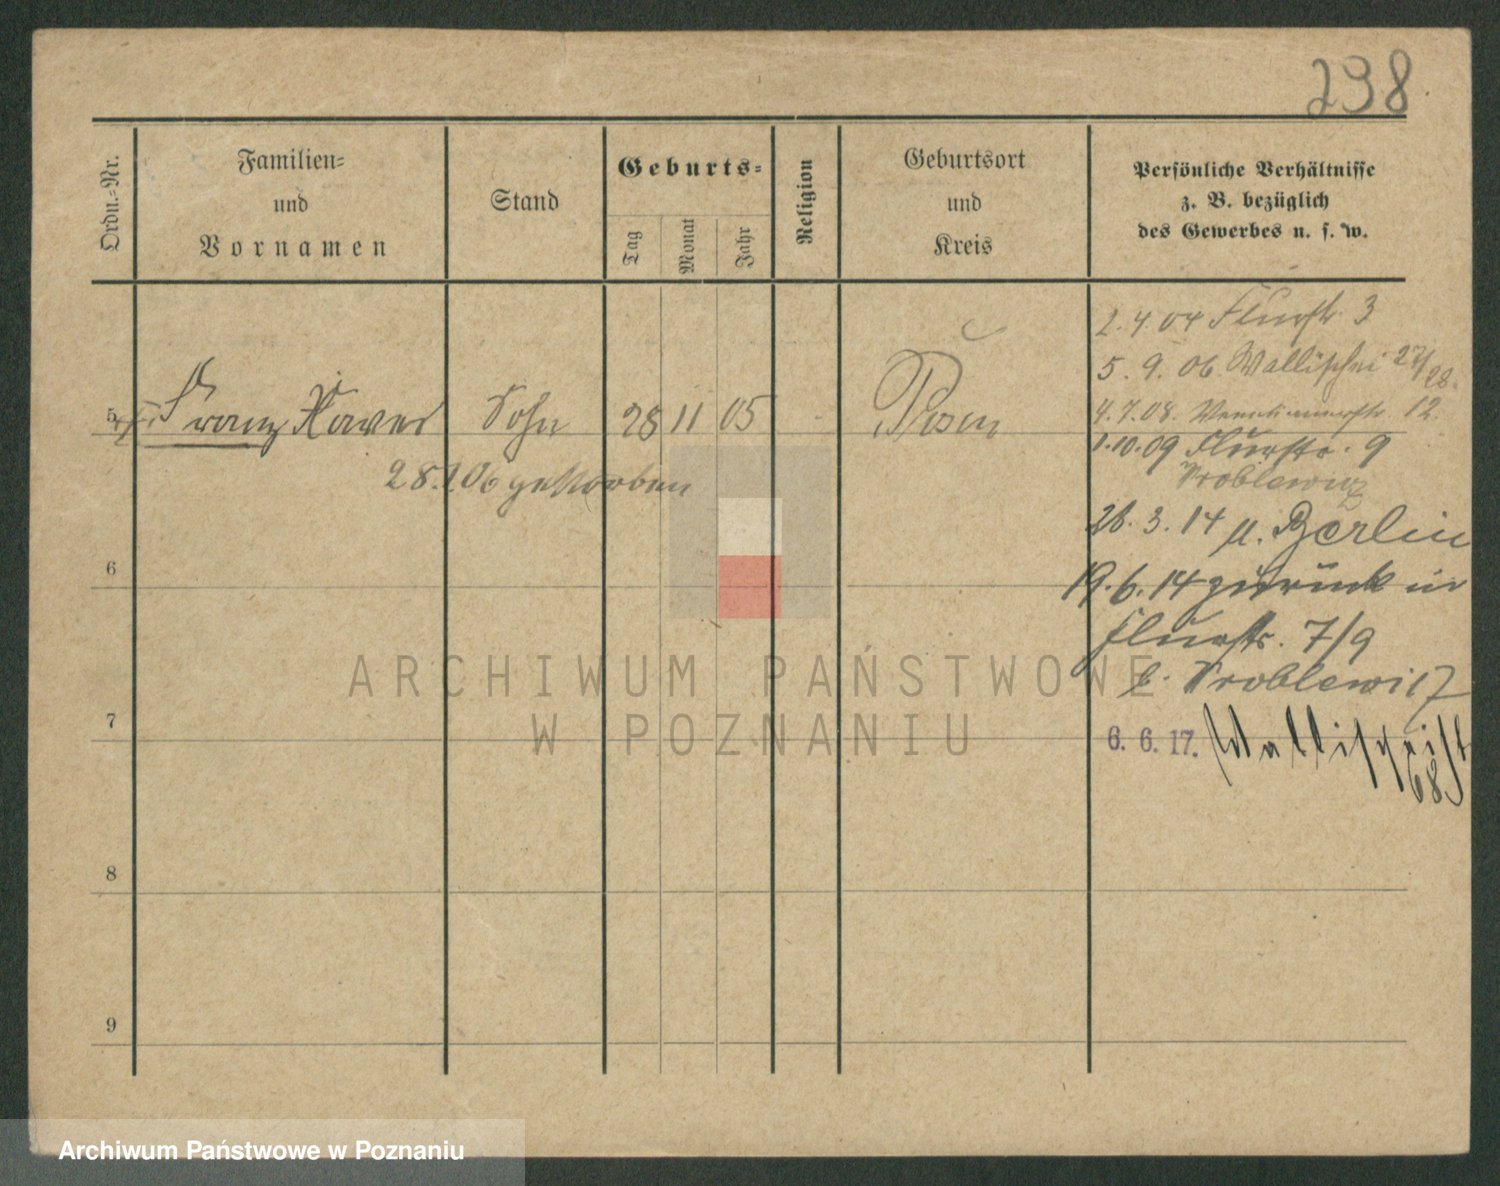 238
Ordn.-Nr.
Familien-
und
Vornamen
Stand
Geburts-
Tag
Monat
Jahr
Religion
Geburtsort
und
Kreis
Persönliche Verhältnisse
z. B. bezüglich
des Gewerbes u. s. w.
5 Franz Xaver Sohn 28 11 05 Posen
28.1.06 gestorben
2.4.04 Flurstr. 3
5.9.06 Wallischei 27/28.
4.7.08. 12.
1.10.09 Flurstr. 9
Wroblewicz
28.3.14 n. Berlin
19.6.14 zurück in
Flurstr. 7/9
b. Wroblewicz
6. 6. 17. Wallischeistr
68
6
7
8
9
ARCHIWUM PAŃSTWOWE
W POZNANIU
Archiwum Państwowe w Poznaniu